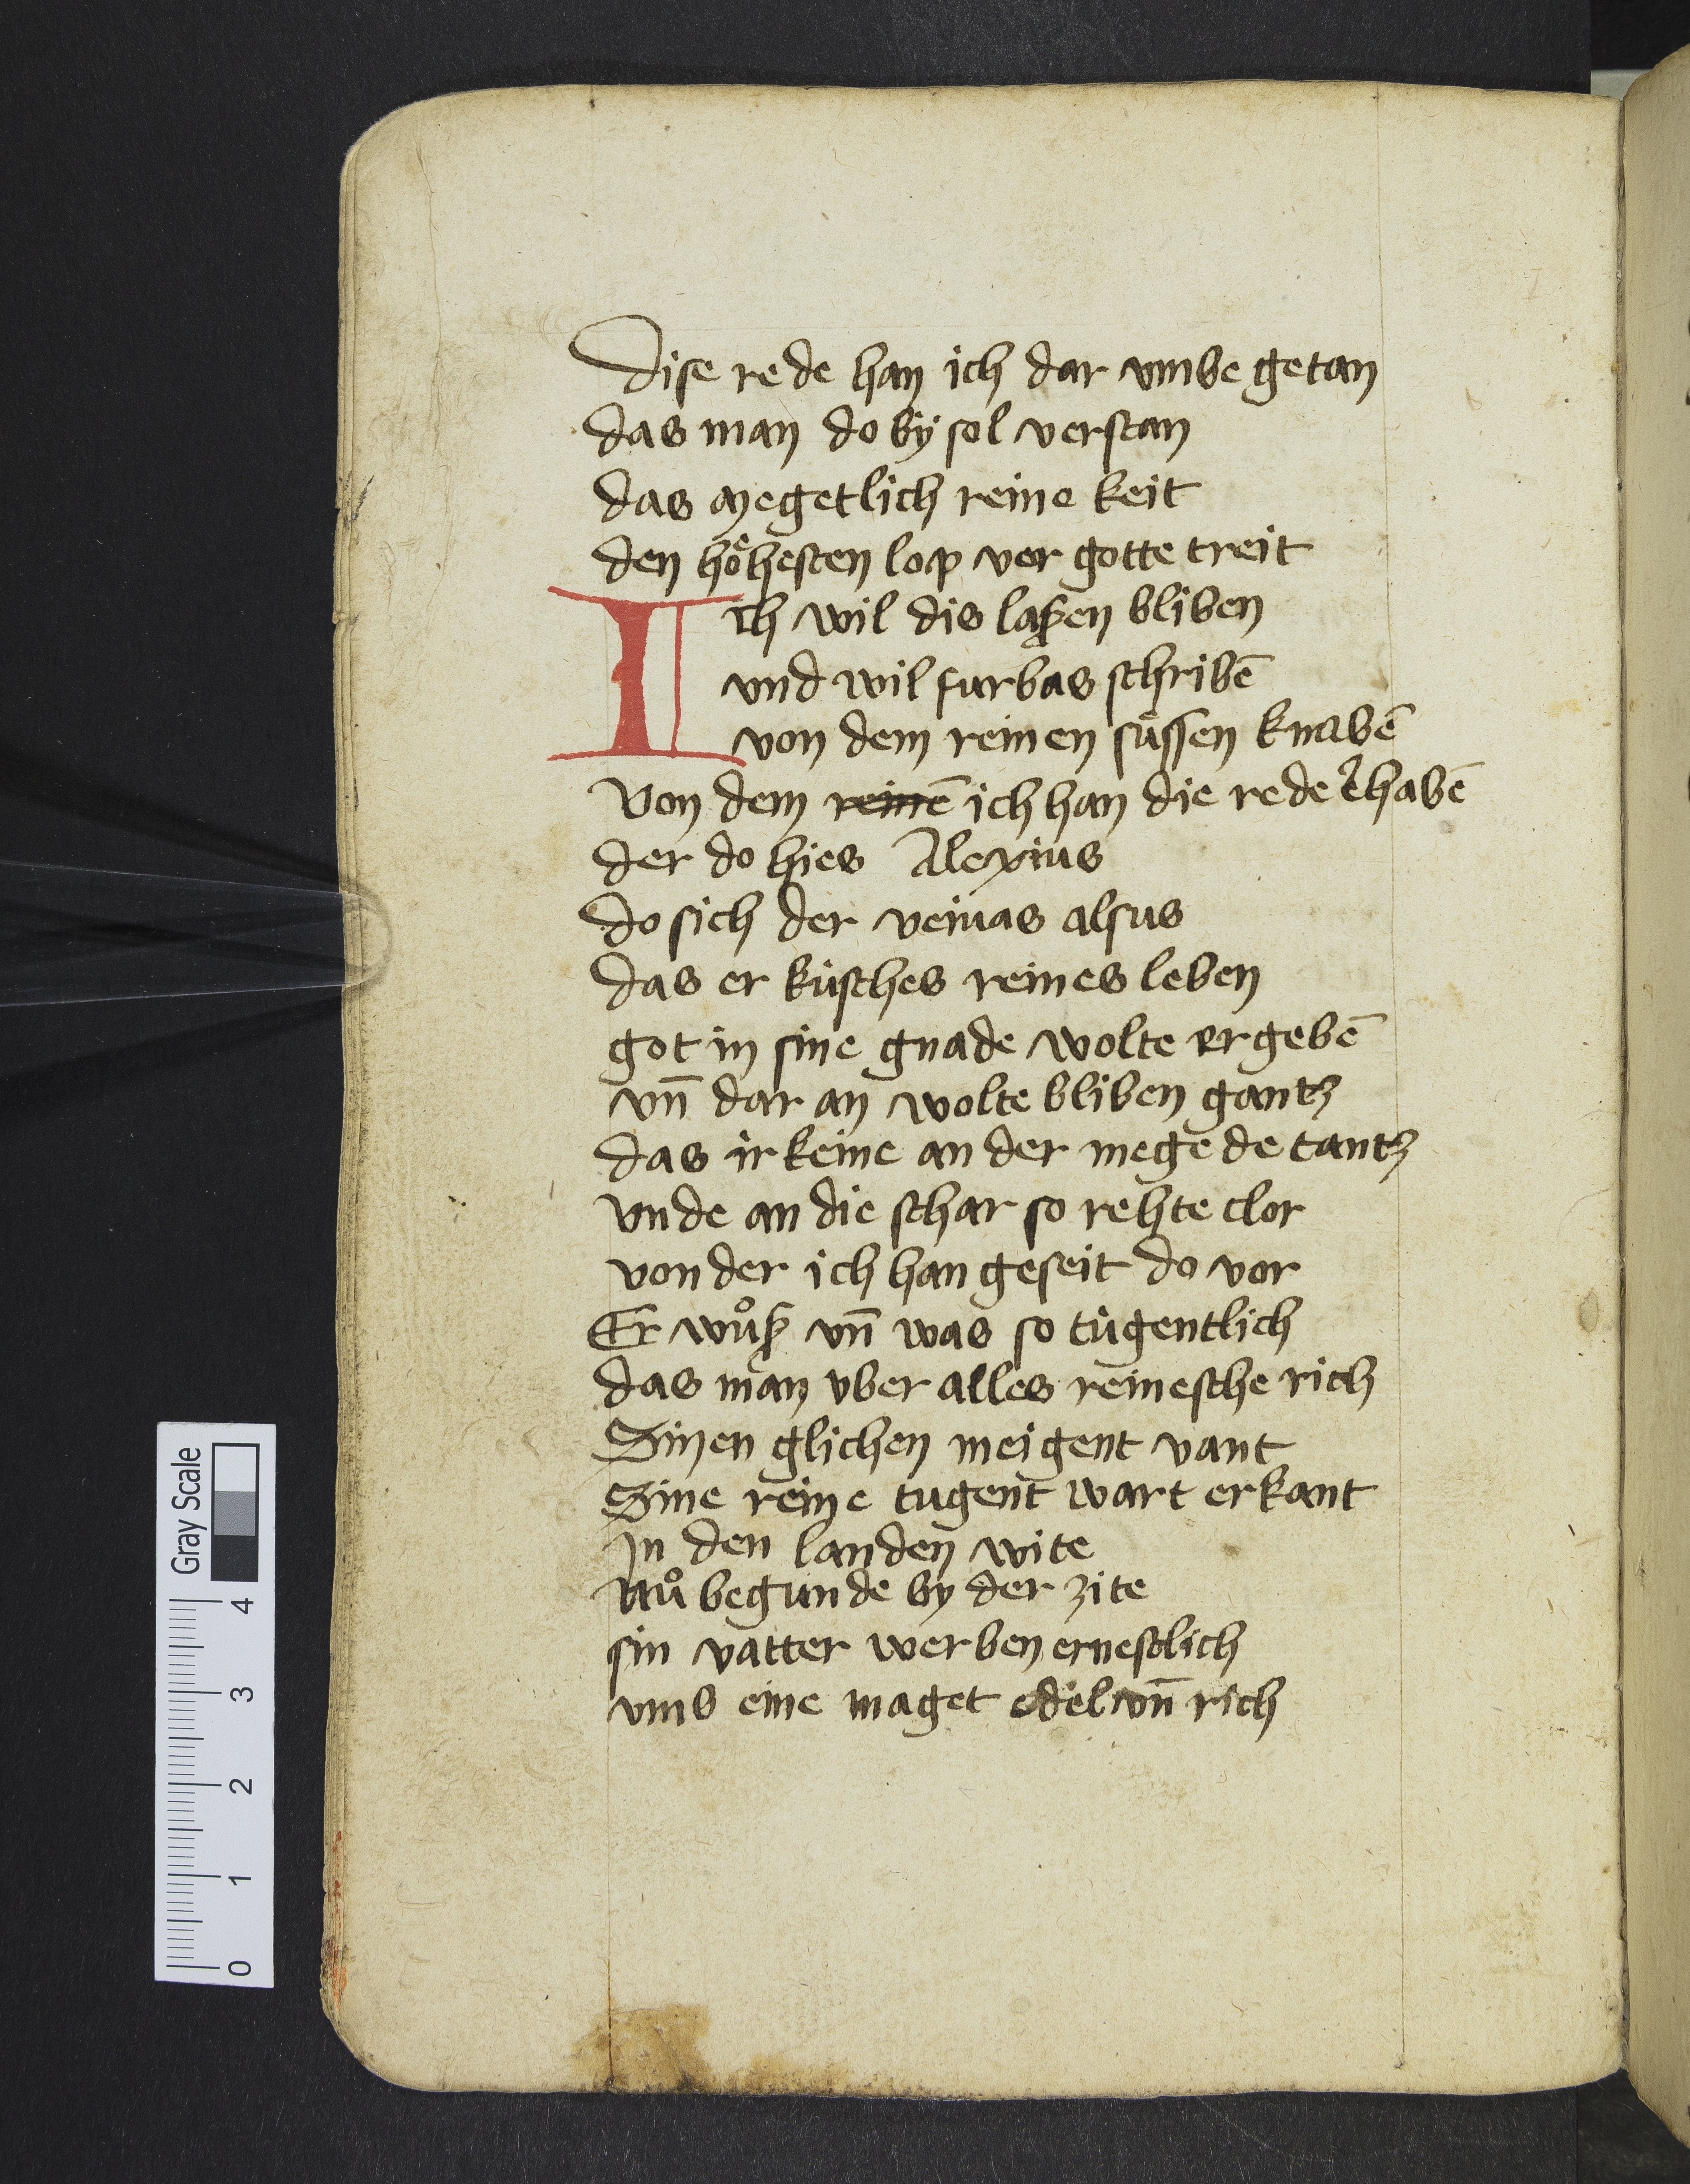 Dise rede han ich dar vmbe getan
das man do bÿ sol verstan
das megetlich reine keit
den hoͤhesten lop vor gotte treit
Iich wil dis laßen bliben
vnd wil furbas schribē
von dem reinen suͤssen knabē
Von dem reinē ich han die rede erhabē
der do hies Alexius
do sich der veruas alsus
das er kusches reines leben
got in sine gnade wolte ergebē
vn̄ dar an wolte bliben gantz
das ir keine an der megede tantz
vnde an die schar so rehte clor
von der ich han geseit do vor
Er wuͦß vn̄ was so tugentlich
das man vber alles reinesche rich
Sinen glichen meigent vant
Sine reine tugent wart erkant
Jn den landen wite
Nuͦ begunde by der zite
sin vatter werben ernestlich
vmb eine maget edel vn̄ rich
Gray Scale
0 1 2 3 4